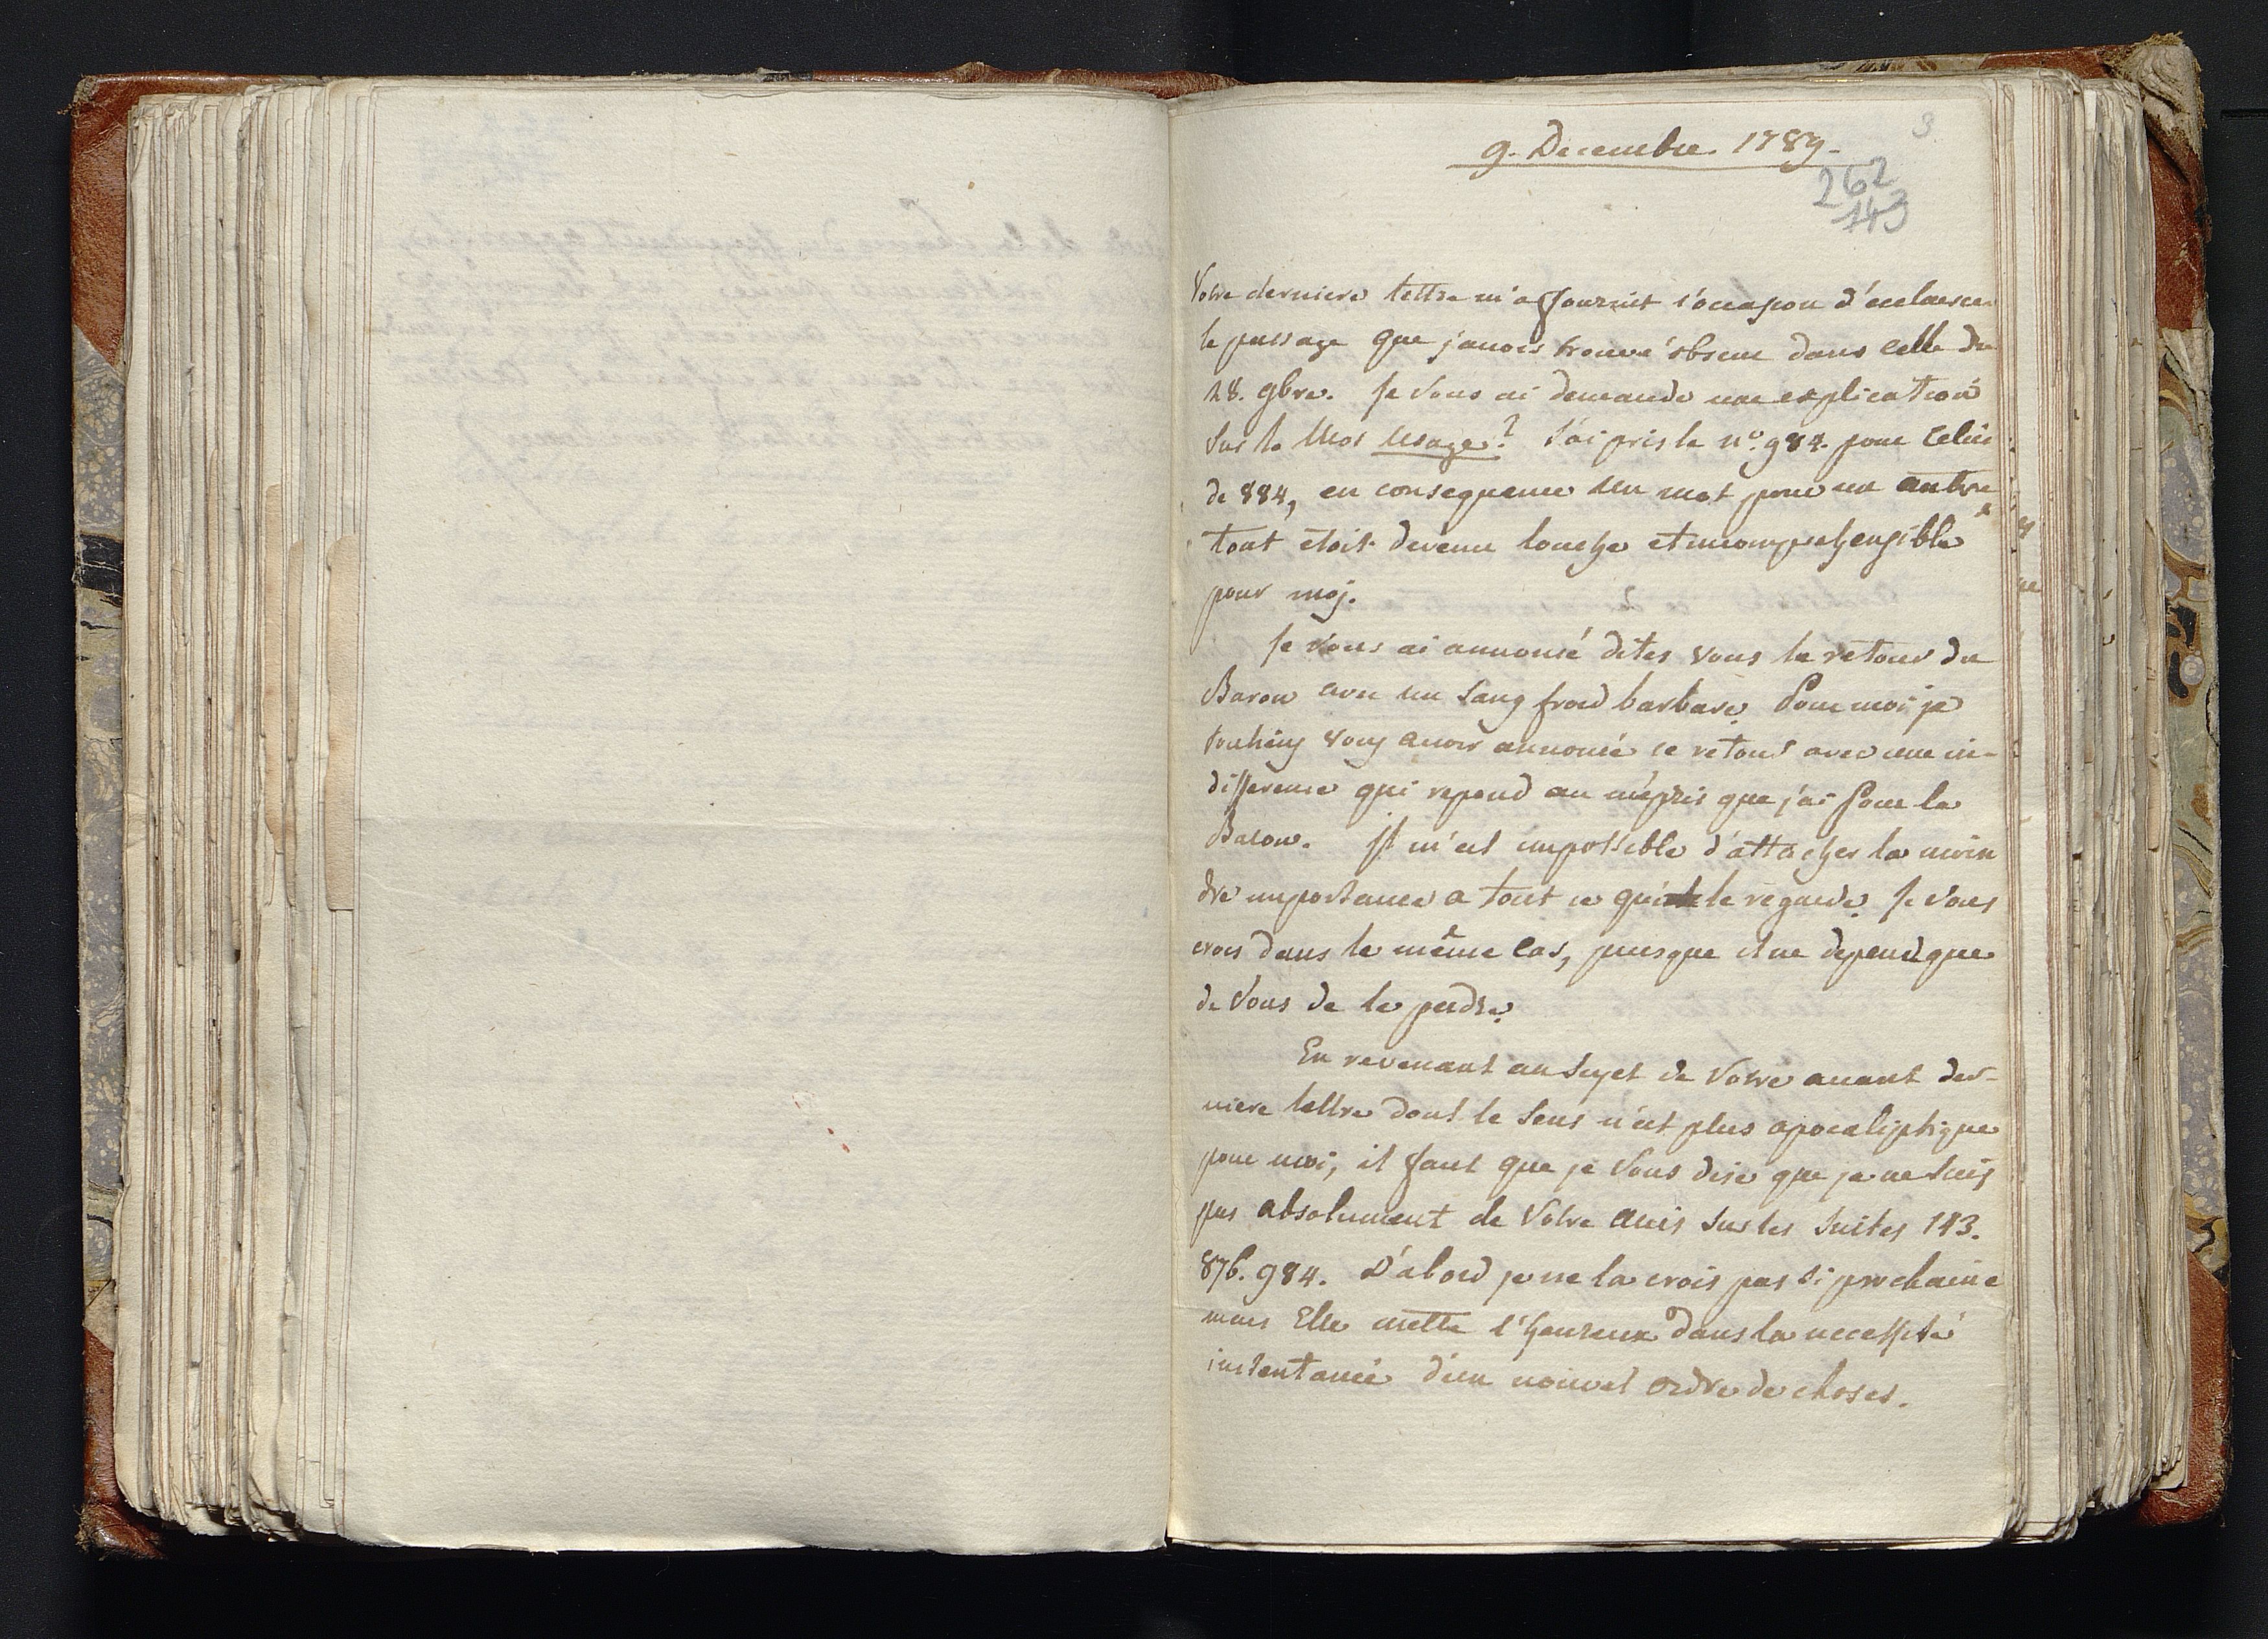 3
9. Decembre. 1789.
262
143
Votre derniere lettre m'a fournit l'occasion d'eclaircir
le passage que j'avois trouvé obscur dans celle du
28. 9bre. Je vous ai demandé une explication
sur le Mot usage? J'ai pris le n.º 984. pour celui
de 884, en consequence un mot pour un autre
tout etoit devenu louche et incomprehensible
pour moj.
Je vous ai annoncé dites vous le retour du
Baron avec un sang froid barbare. Pour moi je
vous avoir annoncé ce retour avec une in-
difference qui repond au mépris que j'ai pour le
Baron. Il m'est impossible d'attacher la moin
dre importance a tout ce qui le regarde. Je vous
crois dans le même cas, puisque il ne depend que
de vous de le perdre.
En revenant au sujet de votre avant der-
niere lettre dont le sens n'est plus apocaliptique
pour moi, il faut que je vous dise que je ne suis
pas absolument de votre avis sur les suites 143.
876. 984. D'abord je ne la crois pas si prochaine
mais Elle mettra l'heureux dans la necessité
instentanée d'un nouvel ordre de choses.